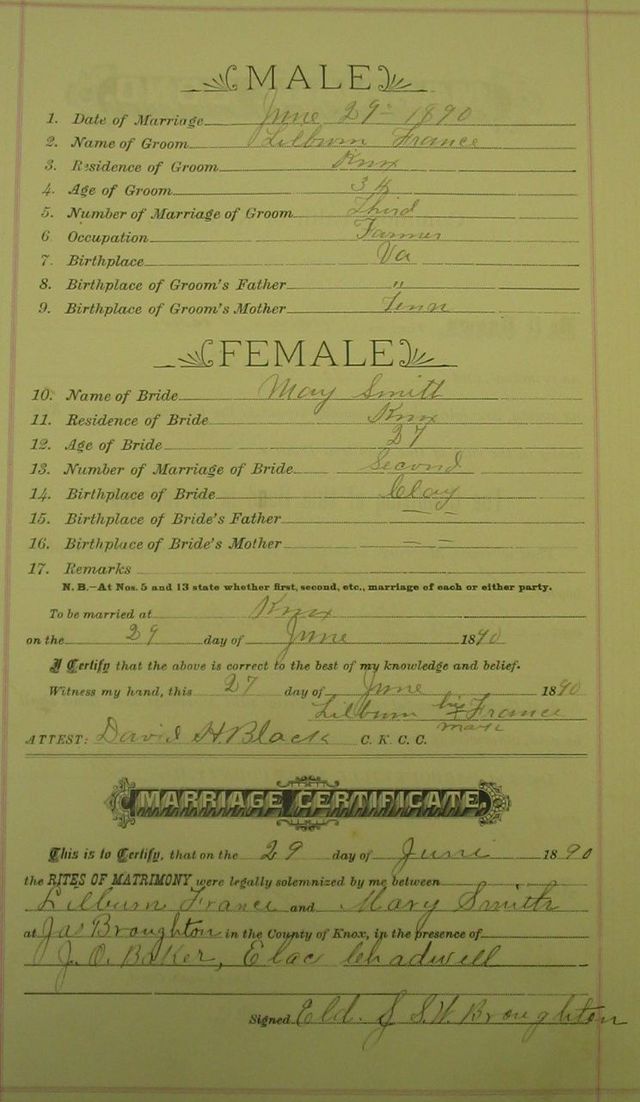 MALE
1. Date of Marriage June 29th 1890
2. Name of Groom Lilburn France
3. Residence of Groom Knx
4. Age of Groom 34
5. Number of Marriage of Groom Third
6. Occupation Farmer
7. Birthplace Va
8. Birthplace of Groom's Father "
9. Birthplace of Groom's Mother Tenn
FEMALE
10. Name of Bride May Smith
11. Residence of Bride Knx
12. Age of Bride 27
13. Number of Marriage of Bride Second
14. Birthplace of Bride Clay
15. Birthplace of Bride's Father — —
16. Birthplace of Bride's Mother — —
17. Remarks
N. B.—At Nos. 5 and 13 state whether first, second, etc., marriage of each or either party.
To be married at Knx
on the 29 day of June 1890
I Certify that the above is correct to the best of my knowledge and belief.
Witness my hand, this 27 day of June 1890
Lilburn his X mark France
ATTEST: David H Black C. K. C. C.
MARRIAGE CERTIFICATE.
This is to Certify, that on the 29 day of June 1890
the RITES OF MATRIMONY were legally solemnized by me between
Lilburn France and Mary Smith
at Jas Broughton in the County of Knox, in the presence of
J. O. Baker, Chadwell
Signed Eld. S. W. Broughton